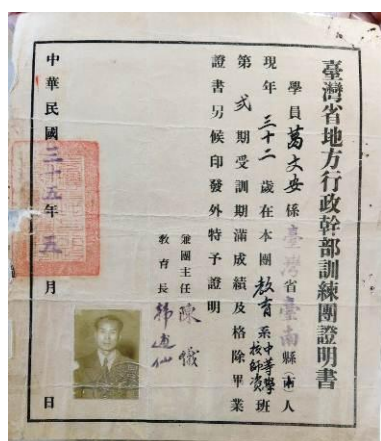 臺灣省地方行政幹部訓練團證明書
學員葛文安係臺灣省臺南縣(市)人
現年三十二歲在本團教育系中等學校師資班
第貳期受訓期滿成績及格除畢業
證書另候印發外特予證明
兼團主任陳儀
教育長韓逋仙
中華民國三十五年五月 日